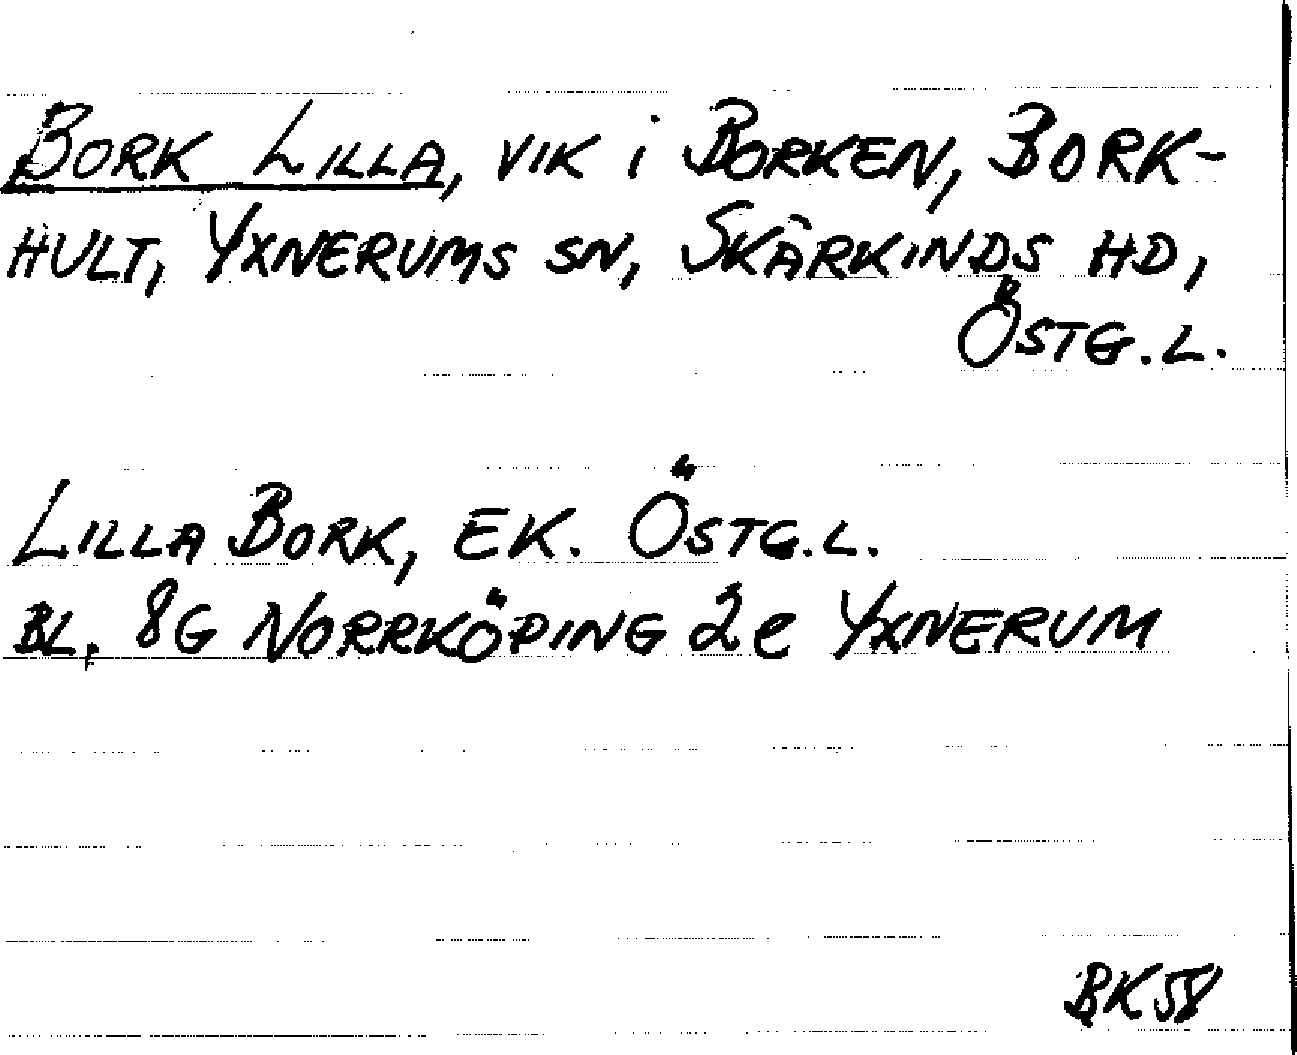 BORK LILLA, VIK i BORKEN, BORK-
HULT, YXNERUMS SN, SKÄRKINDS HD,
ÖSTG.L.
LILLA BORK, EK. ÖSTG.L.
BL. 8G NORRKÖPING 2e YXNERUM
BK58